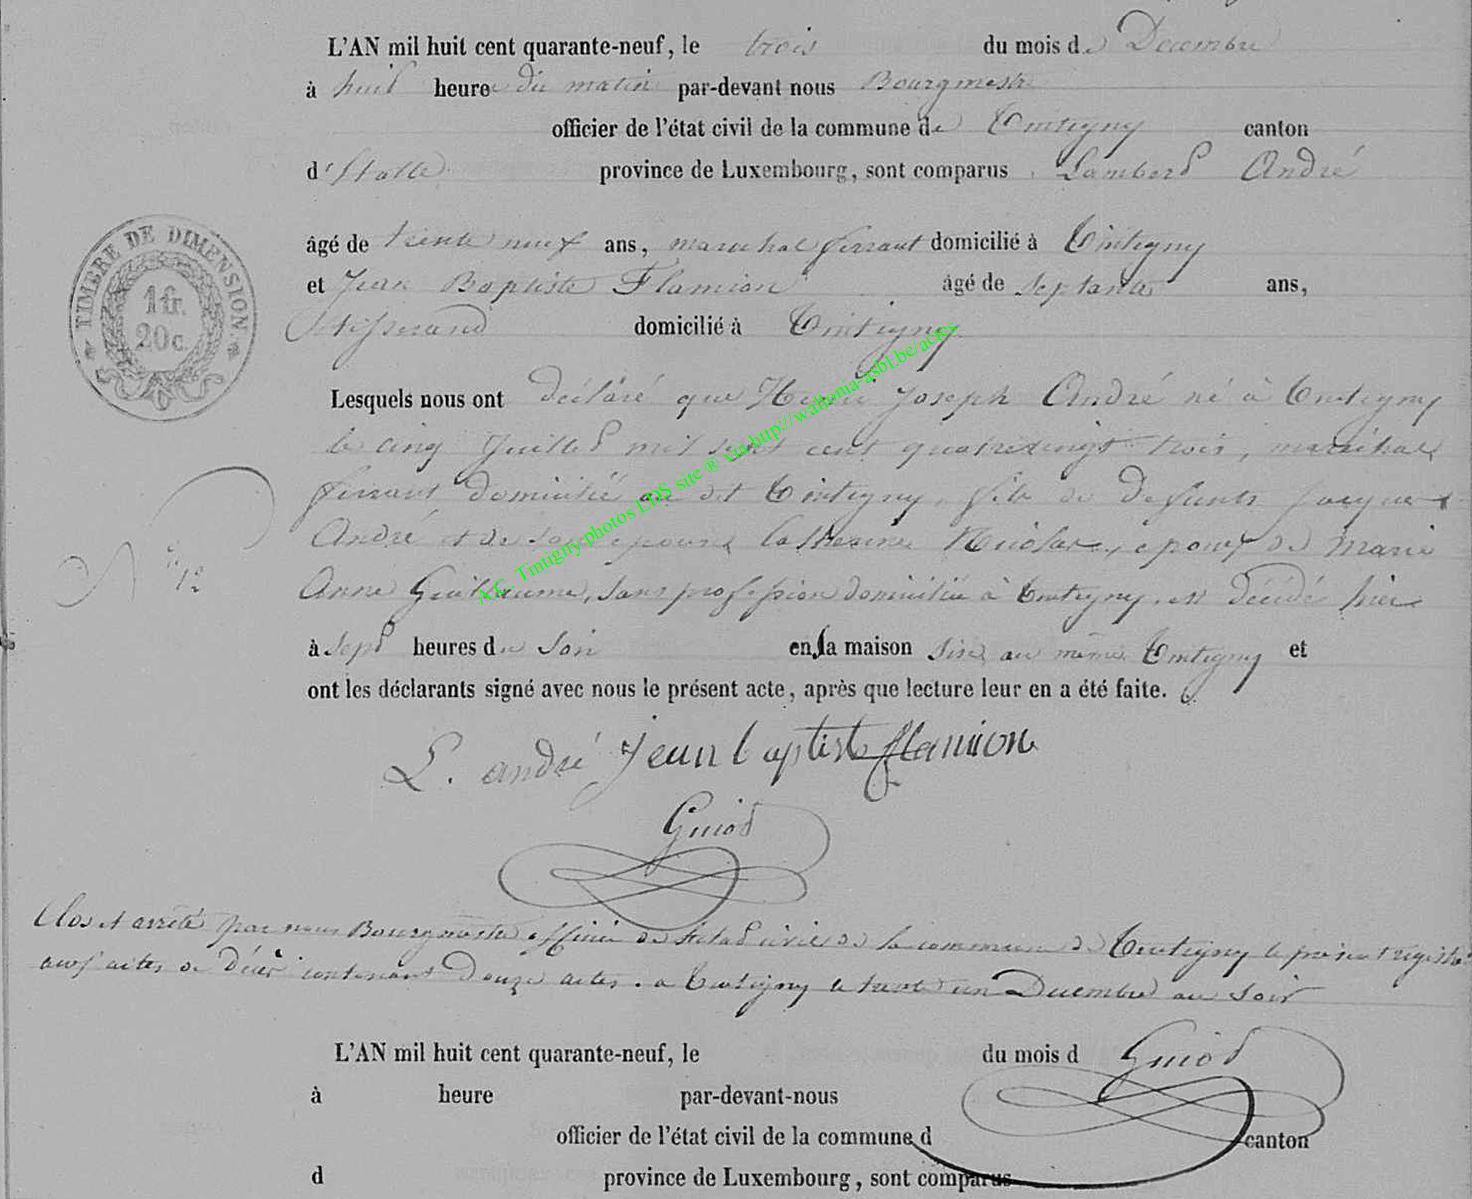 L'AN mil huit cent quarante-neuf, le trois du mois de Decembre
à huit heure du matin par-devant nous Bourgmestre
officier de l'état civil de la commune de Tintigny canton
d'Etalle province de Luxembourg, sont comparus Lambert André
âgé de trente neuf ans, marechal ferrant domicilié à Tintigny
et Jean Baptiste Flamion âgé de septante ans,
tisserand domicilié à Tintigny
Lesquels nous ont déclaré que Joseph André né à Tintigny
le cinq Juillet mil sept cent quatrevingt trois, maréchal
ferrant domicilié au dit Tintigny, fils de Defunts Jacques
André et de son epouse Catherine Nicolas, epoux de Marie
Anne Guillaume, sans profession domiciliée à Tintigny, est décédé hier
N° 12
à sept heures du soir en sa maison sise au même Tintigny et
ont les déclarants signé avec nous le présent acte, après que lecture leur en a été faite.
L. andré Jean baptist flamion
Guiot
Clos et arrêté par nous Bourgmestre officier de l'etat civil de la commune de Tintigny le présent registre
aux actes de Décès contenant Douze actes. a Tintigny le trente un Decembre au soir
Guiot
L'AN mil huit cent quarante-neuf, le du mois d
à heure par-devant-nous
officier de l'état civil de la commune d canton
d province de Luxembourg, sont comparus
TIMBRE DE DIMENSION
1 fr.
20 c.
A.C. Tintigny photos LDS site ® via http://wallonia-asbl.be/acktz